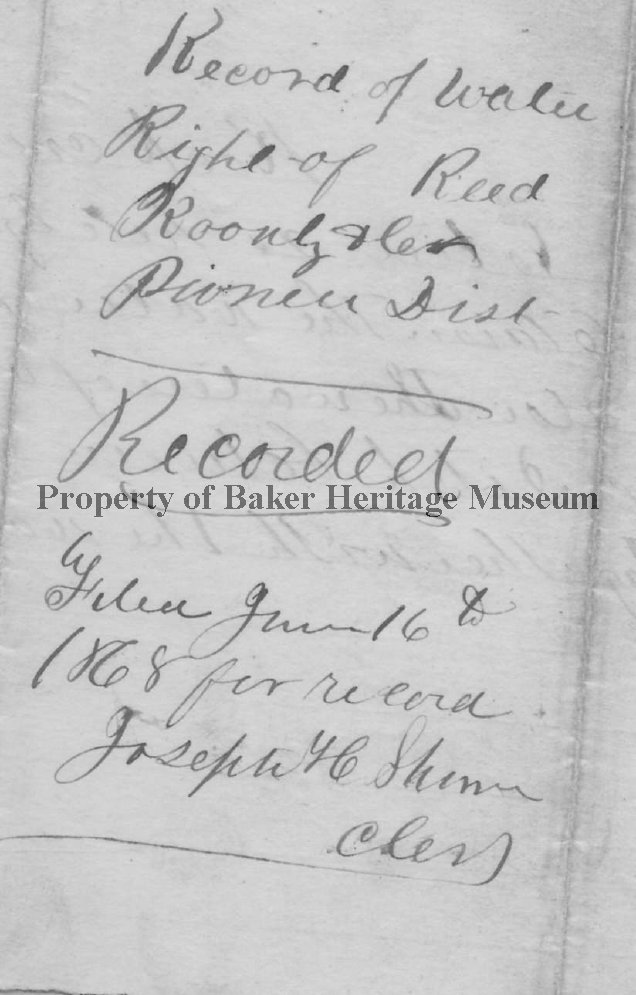 Record of Water
Right of Reed
Koontz & Co
Pioneer Dist
Recorded
Property of Baker Heritage Museum
Filed June 16th
1868 for record
Joseph H Shinn
Clerk